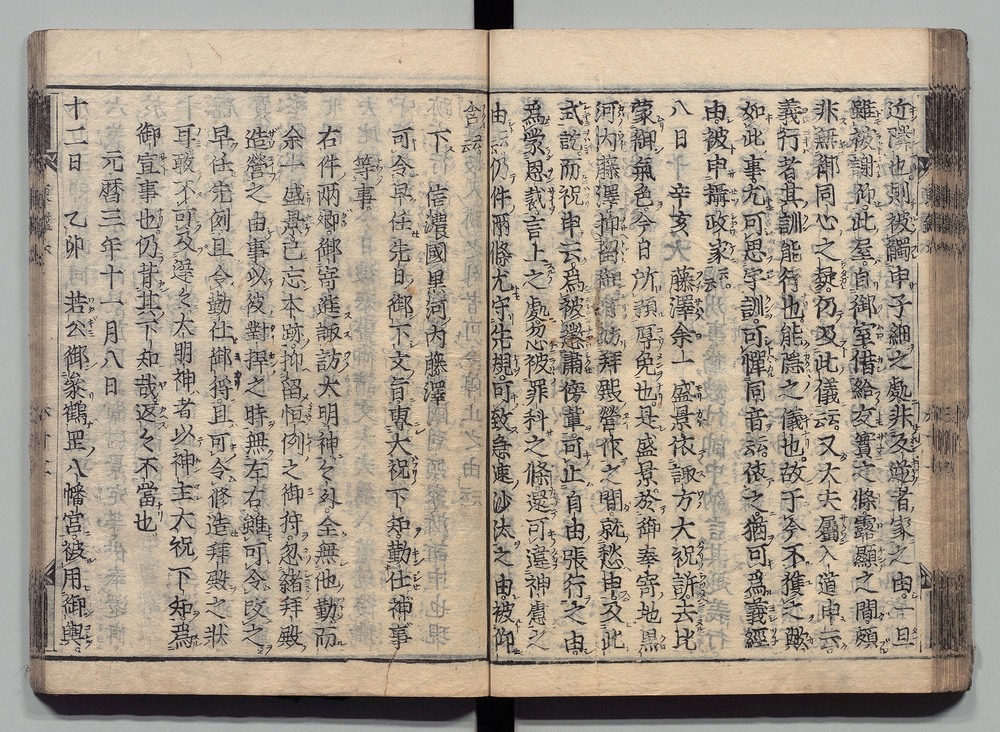 近隣也則被觸申子細之處非及逆者家之由一旦
雖被謝仰此屋自御室借給友實之條露顯之間頗
非無御同心之疑仍及此儀云云又大夫屬入道申云
義行者其訓能行也能隱之儀也故于今不獲之歟
如此事尤可思字訓可憚同音云云依之猶可爲義經
由被申攝政家云云
八日 辛亥 藤澤余一盛景依諏方大祝訴去比
蒙御氣色今日所預厚免也是盛景於御奉寄地黑
河內藤澤抑留狩拜殿營作之間就愁申及此
式訖而祝申云爲被懲肅傍輩可止自由張行之由
爲蒙恩裁言上之處忽被罪科之條還可違神慮之
由云云仍件兩條尤守先規可致急速沙汰之由被仰
含云云
下 信濃國黑河內藤澤
可令早任先日御下文旨專大祝下知勤仕神事
等事
右件兩鄉御寄進諏訪大明神之外全無他勤而
余一盛景已忘本跡抑留恒例之御狩忽緒拜殿
造營之由事以彼對捍之時無左右雖可令改之
早任先例且令勤仕御狩且可令修造拜殿之狀
耳敢不可及違之大明神者以神主大祝下知爲
御宣事也仍背其下知哉返々不當也
元曆三年十一月八日
十二日 乙卯 若公御參鶴岡八幡宮被用御輿